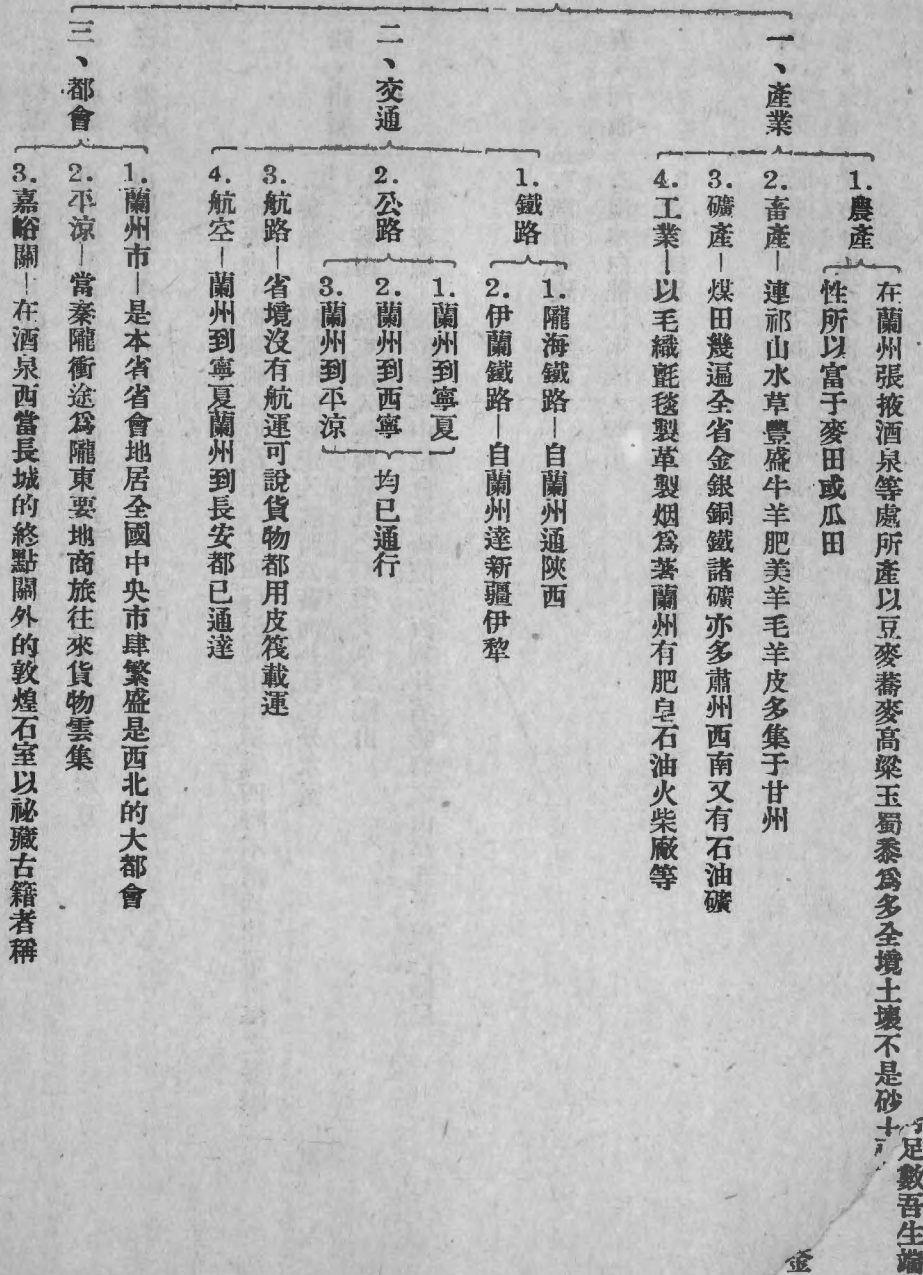 一、產業
1.農產
在蘭州張掖酒泉等處所產以豆麥蕎麥高粱玉蜀黍爲多全境土壤不是砂土
性所以富于麥田或瓜田
2.畜產—連祁山水草豐盛牛羊肥美羊毛羊皮多集于甘州
3.礦產—煤田幾遍全省金銀銅鐵諸礦亦多肅州西南又有石油礦
4.工業—以毛織氈毯製革製烟爲著蘭州有肥皂石油火柴廠等
二、交通
1.鐵路
1.隴海鐵路—自蘭州通陝西
2.伊蘭鐵路—自蘭州達新疆伊犂
2.公路
1.蘭州到寧夏
2.蘭州到西寧
3.蘭州到平涼
均已通行
3.航路—省境沒有航運可說貨物都用皮筏載運
4.航空—蘭州到寧夏蘭州到長安都已通達
三、都會
1.蘭州市—是本省省會地居全國中央市肆繁盛是西北的大都會
2.平涼—當秦隴衝途爲隴東要地商旅往來貨物雲集
3.嘉峪關—在酒泉西當長城的終點關外的敦煌石室以祕藏古籍者稱
足數吾生端
金